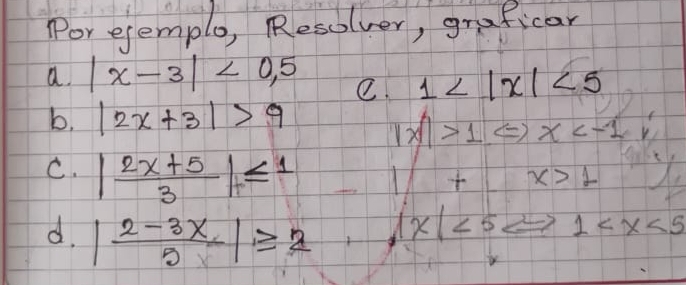 Por ejemplo, Resolver, graficar
a. |x-3| < 0,5
b. |2x+3| > 9
c. |(2x+5)/3| ≤ 1
d. |(2-3x)/5| ≥ 2
e. 1 < |x| < 5
|x| > 1 ⇔ x < -1 y
| + x > 1
|x| < 5 ⇔ 1 < x < 5